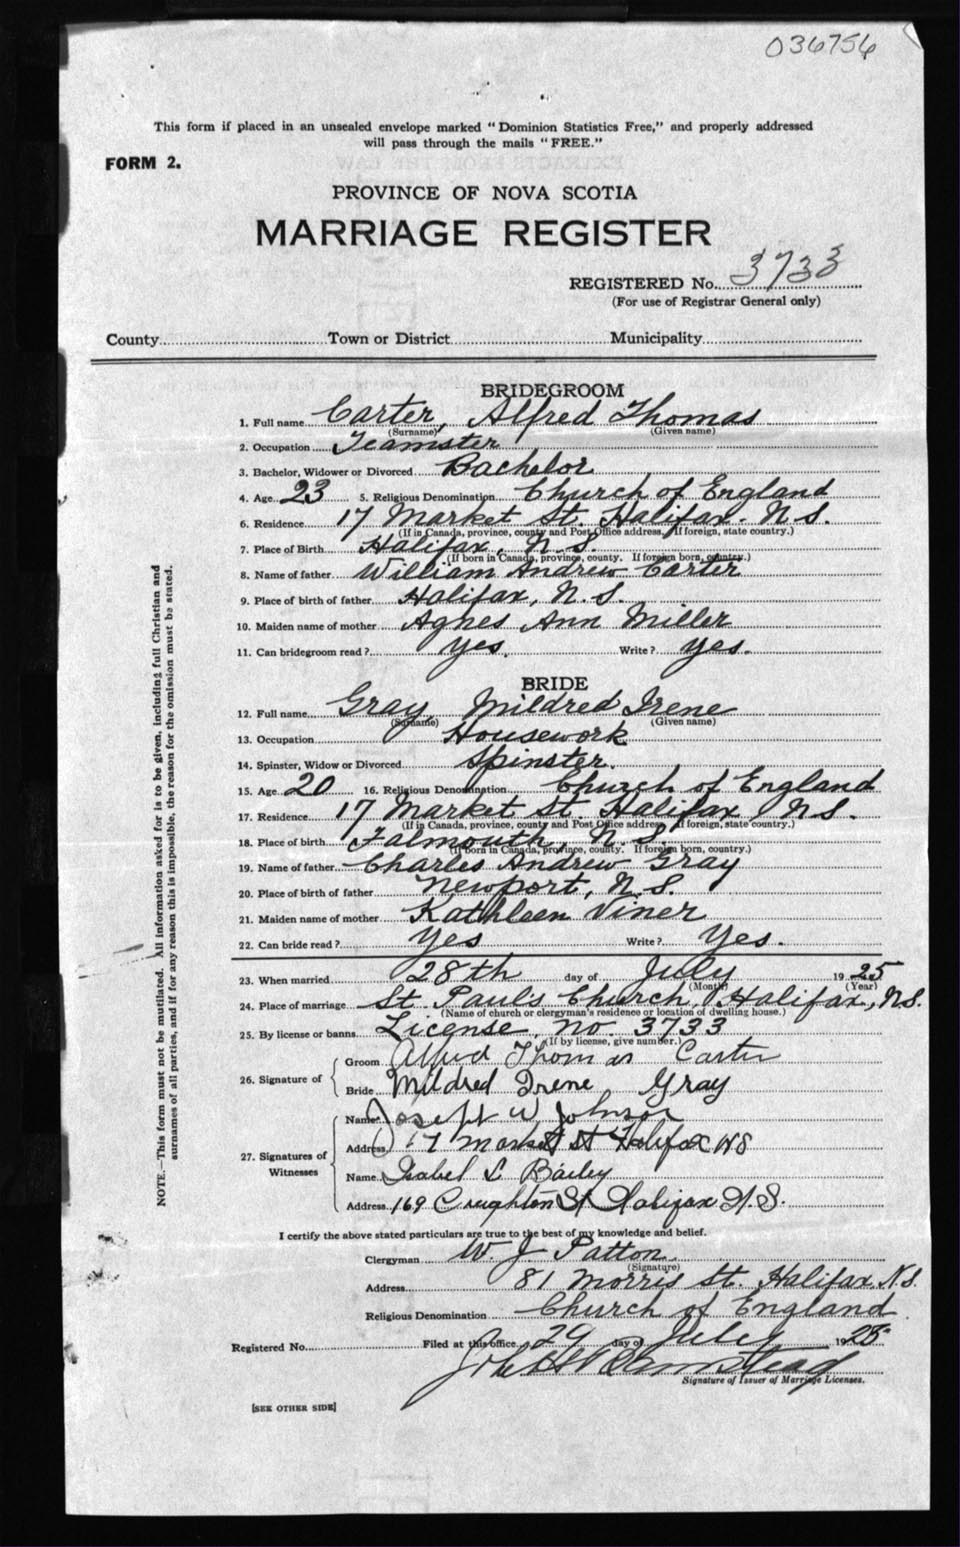 036756
This form if placed in an unsealed envelope marked "Dominion Statistics Free," and properly addressed
will pass through the mails "FREE."
FORM 2.
PROVINCE OF NOVA SCOTIA
MARRIAGE REGISTER
REGISTERED No. 3733
(For use of Registrar General only)
County Town or District Municipality
BRIDEGROOM
1. Full name Carter, Alfred Thomas
(Surname) (Given name)
2. Occupation Teamster
3. Bachelor, Widower or Divorced Bachelor
4. Age 23 5. Religious Denomination Church of England
6. Residence 17 Market St. Halifax. N.S.
(If in Canada, province, county and Post Office address, If foreign, state country.)
7. Place of Birth Halifax, N.S.
(If born in Canada, province, county. If foreign born, country.)
8. Name of father William Andrew Carter
9. Place of birth of father Halifax, N.S.
10. Maiden name of mother Agnes Ann Miller
11. Can bridegroom read? Yes. Write? Yes.
BRIDE
12. Full name Gray, Mildred Irene
(Surname) (Given name)
13. Occupation Housework
14. Spinster, Widow or Divorced Spinster.
15. Age 20 16. Religious Denomination Church of England
17. Residence 17 Market St. Halifax, N.S.
(If in Canada, province, county and Post Office address, If foreign, state country.)
18. Place of birth Falmouth, N.S.
(If born in Canada, province, county. If foreign born, country.)
19. Name of father Charles Andrew Gray
20. Place of birth of father Newport, N.S.
21. Maiden name of mother Kathleen Viner
22. Can bride read? Yes Write? Yes.
23. When married 28th day of July 1925
(Month) (Year)
24. Place of marriage St Paul's Church, Halifax, N.S.
(Name of church or clergyman's residence or location of dwelling house.)
25. By license or banns License, no. 3733
(If by license, give number.)
26. Signature of
Groom Alfred Thomas Carter
Bride Mildred Irene Gray
27. Signatures of
Witnesses
Name Joseph W Johnson
Address 17 Market St Halifax NS
Name Isabel L Bailey
Address 169 Creighton St Halifax N.S.
I certify the above stated particulars are true to the best of my knowledge and belief.
Clergyman W. J. Patton
(Signature)
Address 81 Morris St. Halifax. N.S.
Religious Denomination Church of England
Registered No. Filed at this office 29 day of July 1925
Signature of Issuer of Marriage Licenses.
[SEE OTHER SIDE]
NOTE.—This form must not be mutilated. All information asked for is to be given, including full Christian and
surnames of all parties, and if for any reason this is impossible, the reason for the omission must be stated.